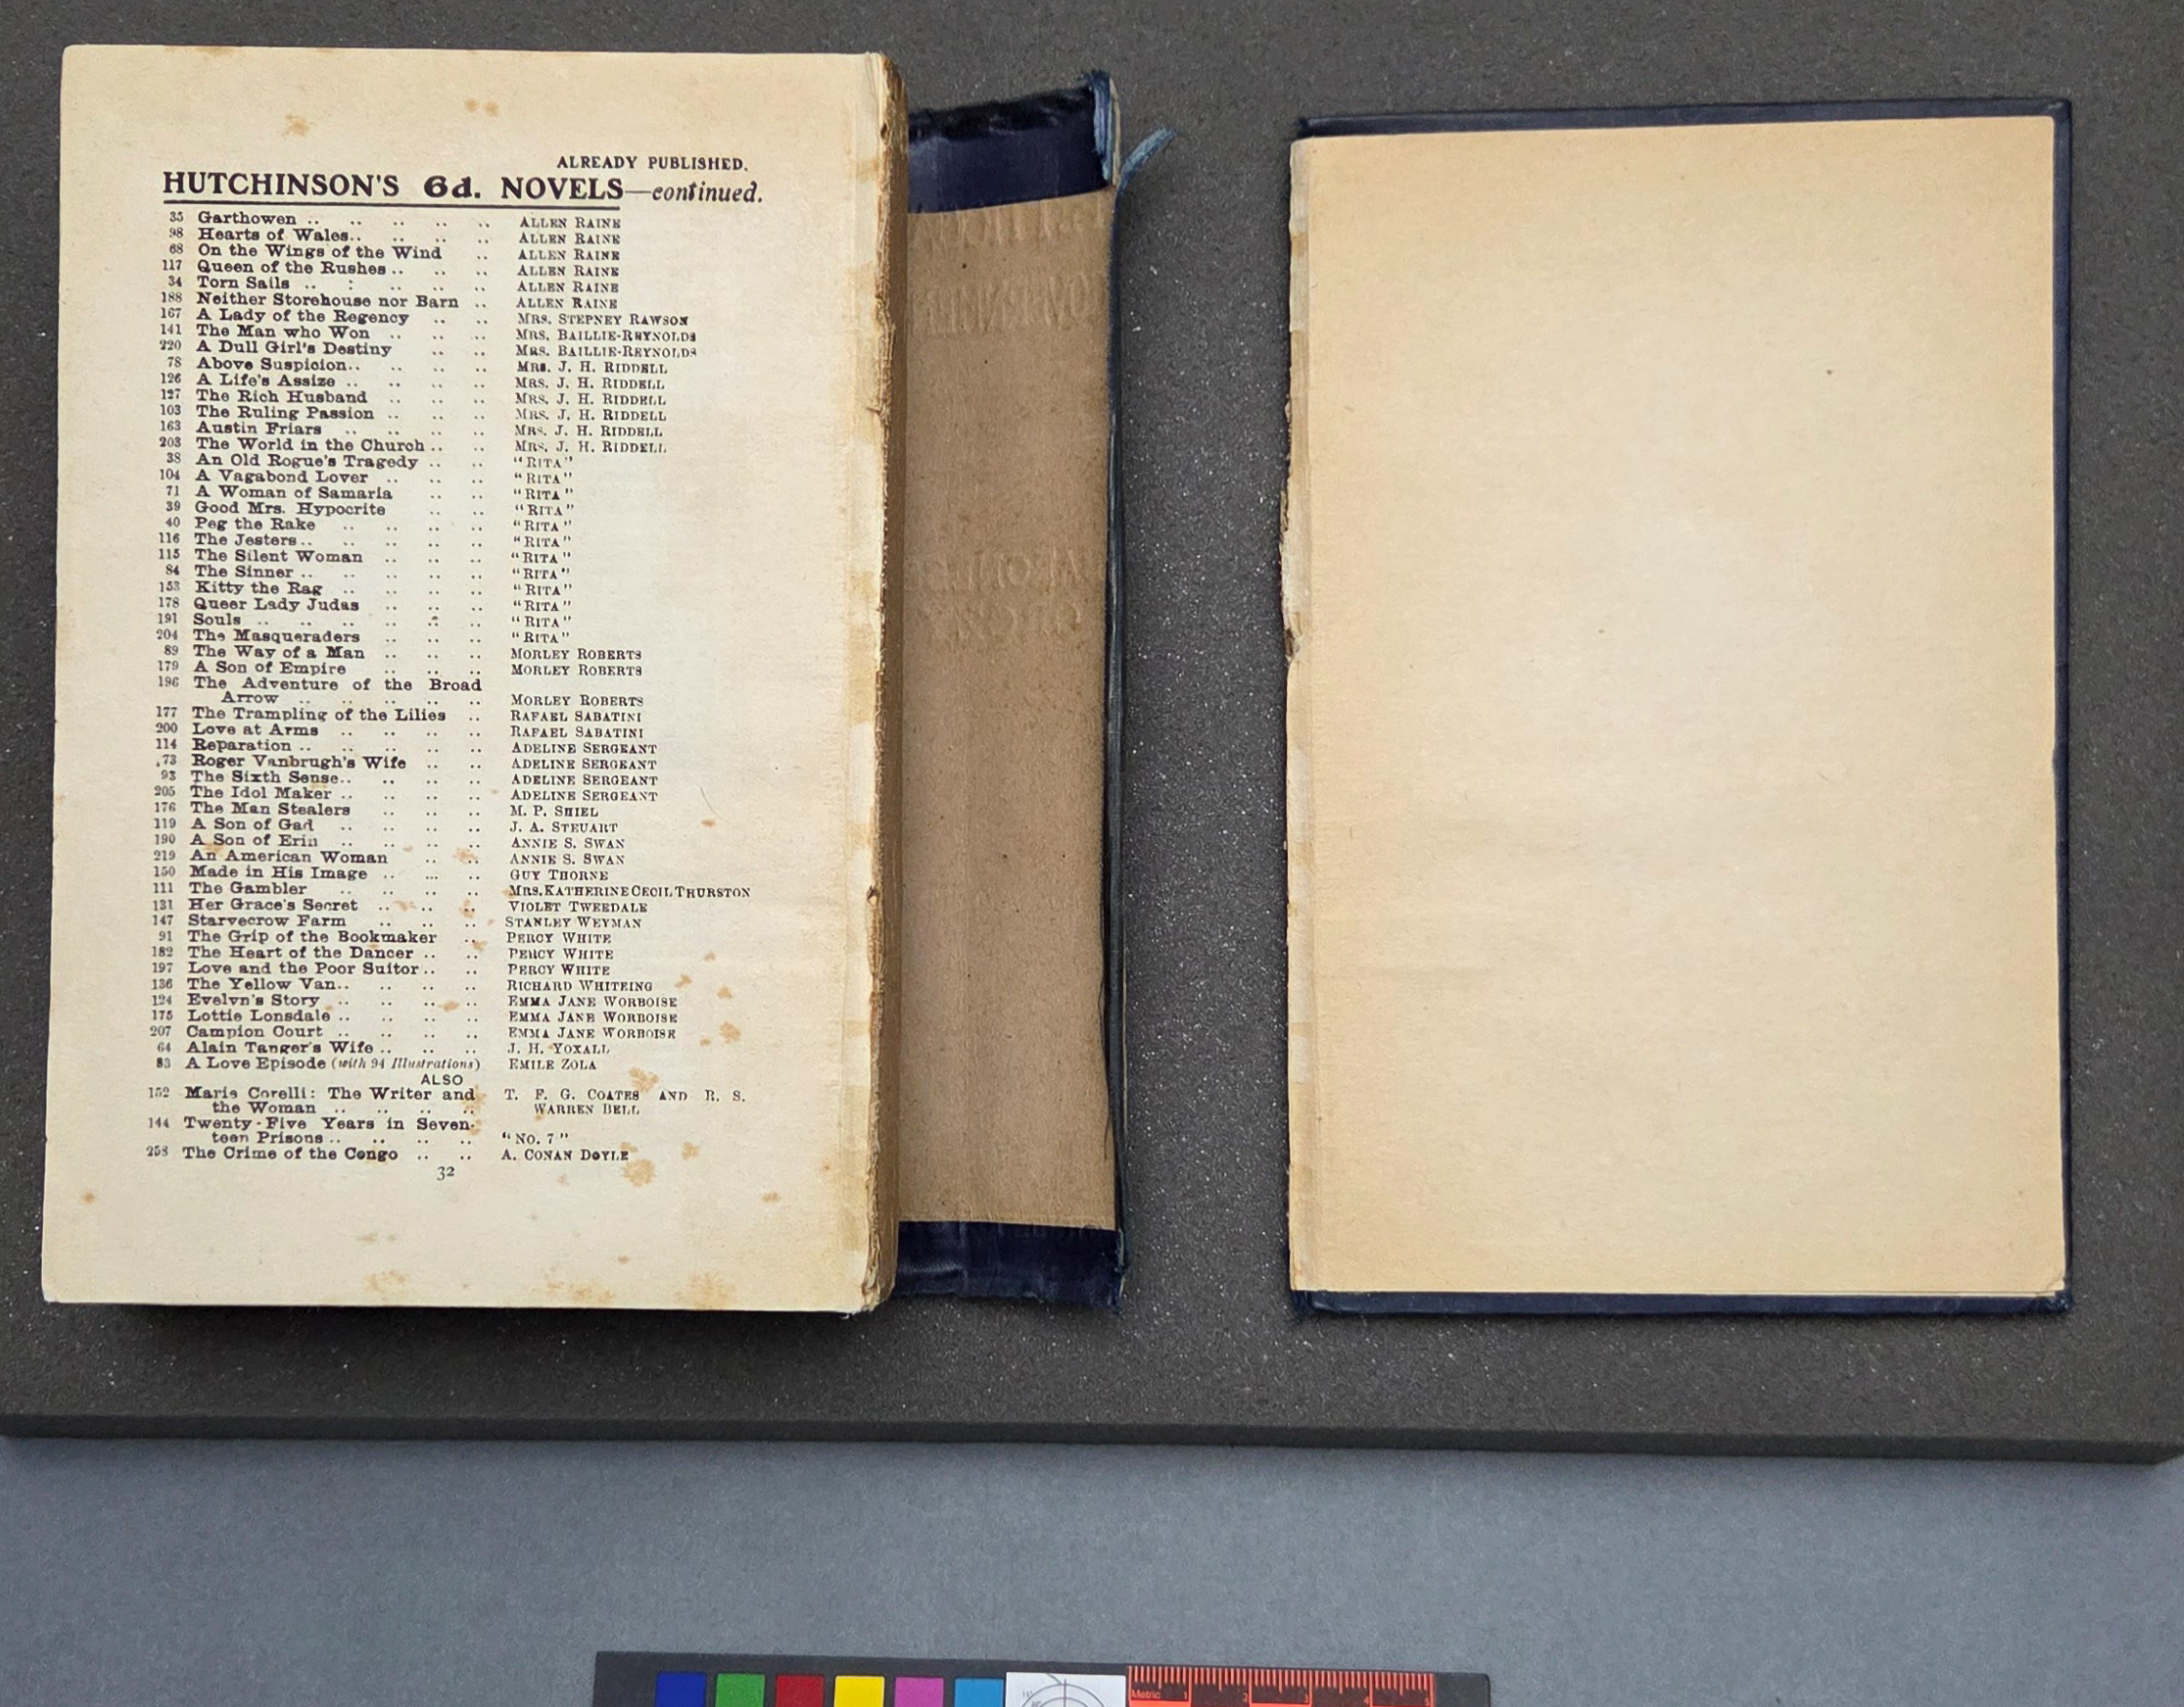 ALREADY PUBLISHED.
HUTCHINSON'S 6d. NOVELS—continued.
35 Garthowen .. .. .. .. .. ALLEN RAINE
98 Hearts of Wales.. .. .. .. ALLEN RAINE
68 On the Wings of the Wind .. ALLEN RAINE
117 Queen of the Rushes .. .. .. ALLEN RAINE
34 Torn Sails .. : .. .. .. ALLEN RAINE
188 Neither Storehouse nor Barn .. ALLEN RAINE
167 A Lady of the Regency .. .. MRS. STEPNEY RAWSON
141 The Man who Won .. .. .. MRS. BAILLIE-REYNOLDS
220 A Dull Girl's Destiny .. .. MRS. BAILLIE-REYNOLDS
78 Above Suspicion.. .. .. .. MRS. J. H. RIDDELL
126 A Life's Assize .. .. .. .. MRS. J. H. RIDDELL
127 The Rich Husband .. .. .. MRS. J. H. RIDDELL
103 The Ruling Passion .. .. .. MRS. J. H. RIDDELL
163 Austin Friars .. .. .. .. MRS. J. H. RIDDELL
203 The World in the Church .. .. MRS. J. H. RIDDELL
38 An Old Rogue's Tragedy .. .. "RITA"
104 A Vagabond Lover .. .. .. "RITA"
71 A Woman of Samaria .. .. "RITA"
39 Good Mrs. Hypocrite .. .. "RITA"
40 Peg the Rake .. .. .. .. "RITA"
116 The Jesters .. .. .. .. .. "RITA"
115 The Silent Woman .. .. .. "RITA"
84 The Sinner .. .. .. .. .. "RITA"
153 Kitty the Rag .. .. .. .. "RITA"
178 Queer Lady Judas .. .. .. "RITA"
191 Souls .. .. .. .. .. .. "RITA"
204 The Masqueraders .. .. .. "RITA"
89 The Way of a Man .. .. .. MORLEY ROBERTS
179 A Son of Empire .. .. .. MORLEY ROBERTS
196 The Adventure of the Broad
Arrow .. .. .. .. .. MORLEY ROBERTS
177 The Trampling of the Lilies .. RAFAEL SABATINI
200 Love at Arms .. .. .. .. RAFAEL SABATINI
114 Reparation .. .. .. .. .. ADELINE SERGEANT
73 Roger Vanbrugh's Wife .. .. ADELINE SERGEANT
93 The Sixth Sense.. .. .. .. ADELINE SERGEANT
205 The Idol Maker .. .. .. .. ADELINE SERGEANT
176 The Man Stealers .. .. .. M. P. SHIEL
119 A Son of Gad .. .. .. .. J. A. STEUART
190 A Son of Erin .. .. .. .. ANNIE S. SWAN
219 An American Woman .. .. ANNIE S. SWAN
150 Made in His Image .. ... .. GUY THORNE
111 The Gambler .. .. .. .. MRS. KATHERINE CECIL THURSTON
131 Her Grace's Secret .. .. .. VIOLET TWEEDALE
147 Starvecrow Farm .. .. .. STANLEY WEYMAN
91 The Grip of the Bookmaker .. PERCY WHITE
182 The Heart of the Dancer .. .. PERCY WHITE
197 Love and the Poor Suitor .. .. PERCY WHITE
136 The Yellow Van.. .. .. .. RICHARD WHITEING
124 Evelyn's Story .. .. .. .. EMMA JANE WORBOISE
175 Lottie Lonsdale .. .. .. .. EMMA JANE WORBOISE
207 Campion Court .. .. .. .. EMMA JANE WORBOISE
64 Alain Tanger's Wife .. .. .. J. H. YOXALL
83 A Love Episode (with 94 Illustrations) EMILE ZOLA
ALSO
152 Marie Corelli: The Writer and T. F. G. COATES AND R. S.
the Woman .. .. .. .. WARREN BELL
144 Twenty-Five Years in Seven-
teen Prisons .. .. .. .. "NO. 7"
258 The Crime of the Congo .. .. A. CONAN DOYLE
32
Metric 1 2 3 4 5